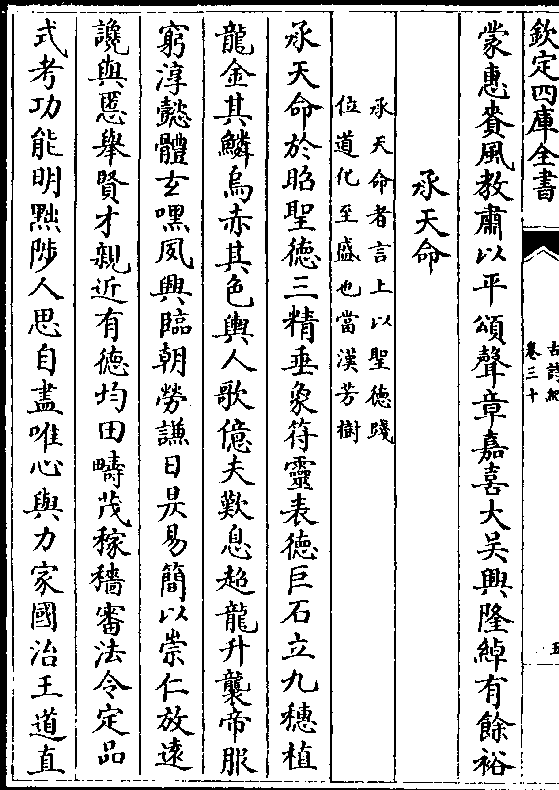 欽定四庫全書
古詩紀
卷三十
五
蒙惠賚風教肅以平頌聲章嘉喜大吴興隆綽有餘裕
承天命
承天命者言上以聖德踐
位道化至盛也當漢芳樹
承天命於昭聖德三精垂象符靈表德巨石立九穗植
龍金其鱗烏赤其色輿人歌億夫歎息超龍升襲帝服
窮淳懿體玄嘿夙興臨朝勞謙日昃易簡以崇仁放遠
讒與慝舉賢才親近有德均田疇茂稼穡審法令定品
式考功能明黜陟人思自盡唯心與力家國治王道直